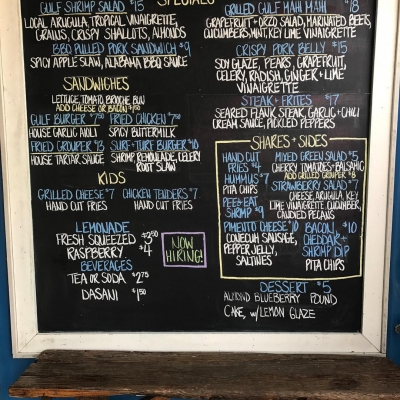 SPECIALS
GULF SHRIMP SALAD $15
LOCAL ARUGULA, TROPICAL VINAIGRETTE,
GRAINS, CRISPY SHALLOTS, ALMONDS
BBQ PULLED PORK SANDWICH $9
SPICY APPLE SLAW, ALABAMA BBQ SAUCE
SANDWICHES
LETTUCE, TOMATO, BRIOCHE BUN
ADD CHEESE OR BACON
GULF BURGER $7.50 FRIED CHICKEN $7.50
HOUSE GARLIC AIOLI SPICY BUTTERMILK
FRIED GROUPER $13 SURF+TURF BURGER $10
HOUSE TARTAR SAUCE SHRIMP, REMOULADE, CELERY
ROOT SLAW
KIDS
GRILLED CHEESE $7 CHICKEN TENDERS $7
HAND CUT FRIES HAND CUT FRIES
LEMONADE
FRESH SQUEEZED $3.50
RASPBERRY $4
BEVERAGES
TEA OR SODA $2.75
DASANI $1.50
NOW
HIRING!
GRILLED GULF MAHI MAHI $18
GRAPEFRUIT + ORZO SALAD, MARINATED BEETS,
CUCUMBERS, MINT, KEY LIME VINAIGRETTE
CRISPY PORK BELLY $15
SOY GLAZE, PEARS, GRAPEFRUIT,
CELERY, RADISH, GINGER + LIME
VINAIGRETTE
STEAK + FRITES $17
SEARED FLANK STEAK, GARLIC + CHILI
CREAM SAUCE, PICKLED PEPPERS
SHARES + SIDES
HAND CUT
FRIES $4
HUMMUS $7
PITA CHIPS
PEEL + EAT
SHRIMP $9
PIMENTO CHEESE $10
CONECUH SAUSAGE,
PEPPER JELLY,
SALTINES
MIXED GREEN SALAD $5
CHERRY TOMATOES + BALSAMIC
ADD GRILLED GROUPER
STRAWBERRY SALAD $7
CHEESE, ARUGULA, KEY
LIME VINAIGRETTE, CUCUMBER,
CANDIED PECANS
BACON, $10
CHEDDAR +
SHRIMP DIP
PITA CHIPS
DESSERT $5
ALMOND BLUEBERRY POUND
CAKE, W/ LEMON GLAZE